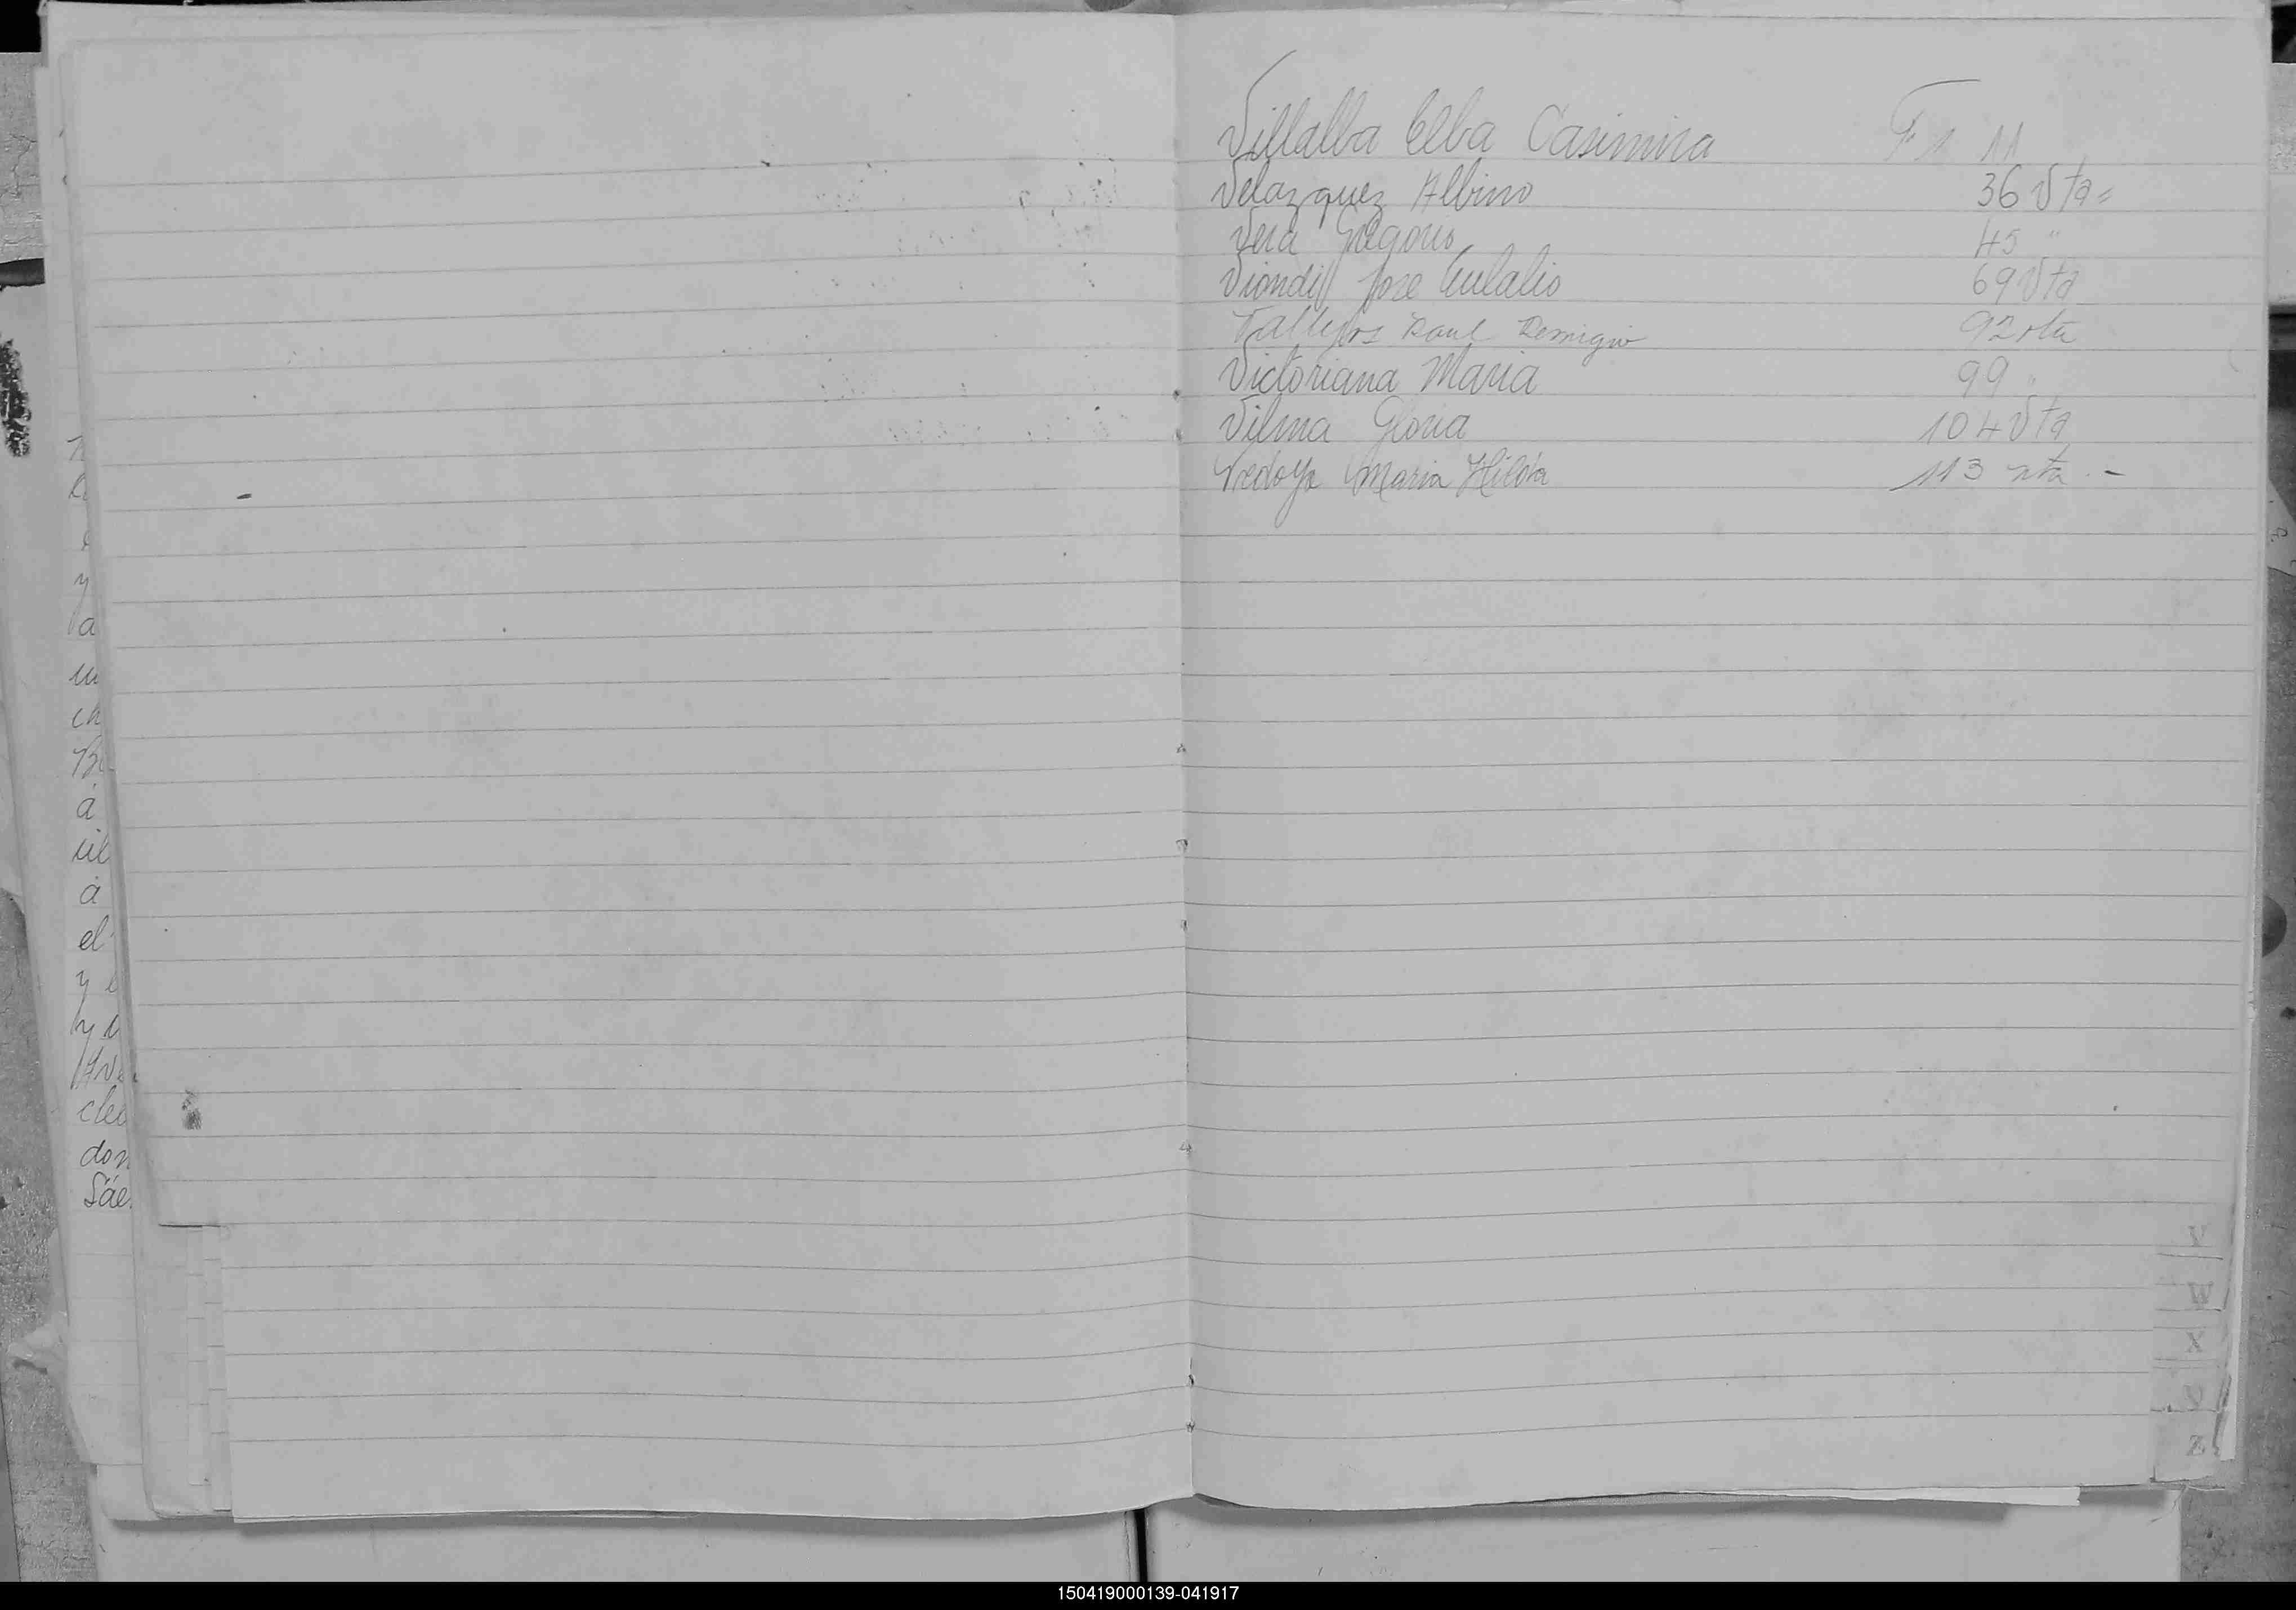 Villalba Elba Casimira F 1 11
Velazquez Albino 36 Vta =
Vera Gregorio 45 "
Viondi José Eulalio 69 Vta
Vallejos Raul Remigio 92 vta
Victoriana Maria 99 "
Vilma Gloria 104 Vta
Vedoya Maria Hilda 113 vta .-
a
ch
á
á
el
don
Sáe
V
W
X
Y
Z
150419000139-041917